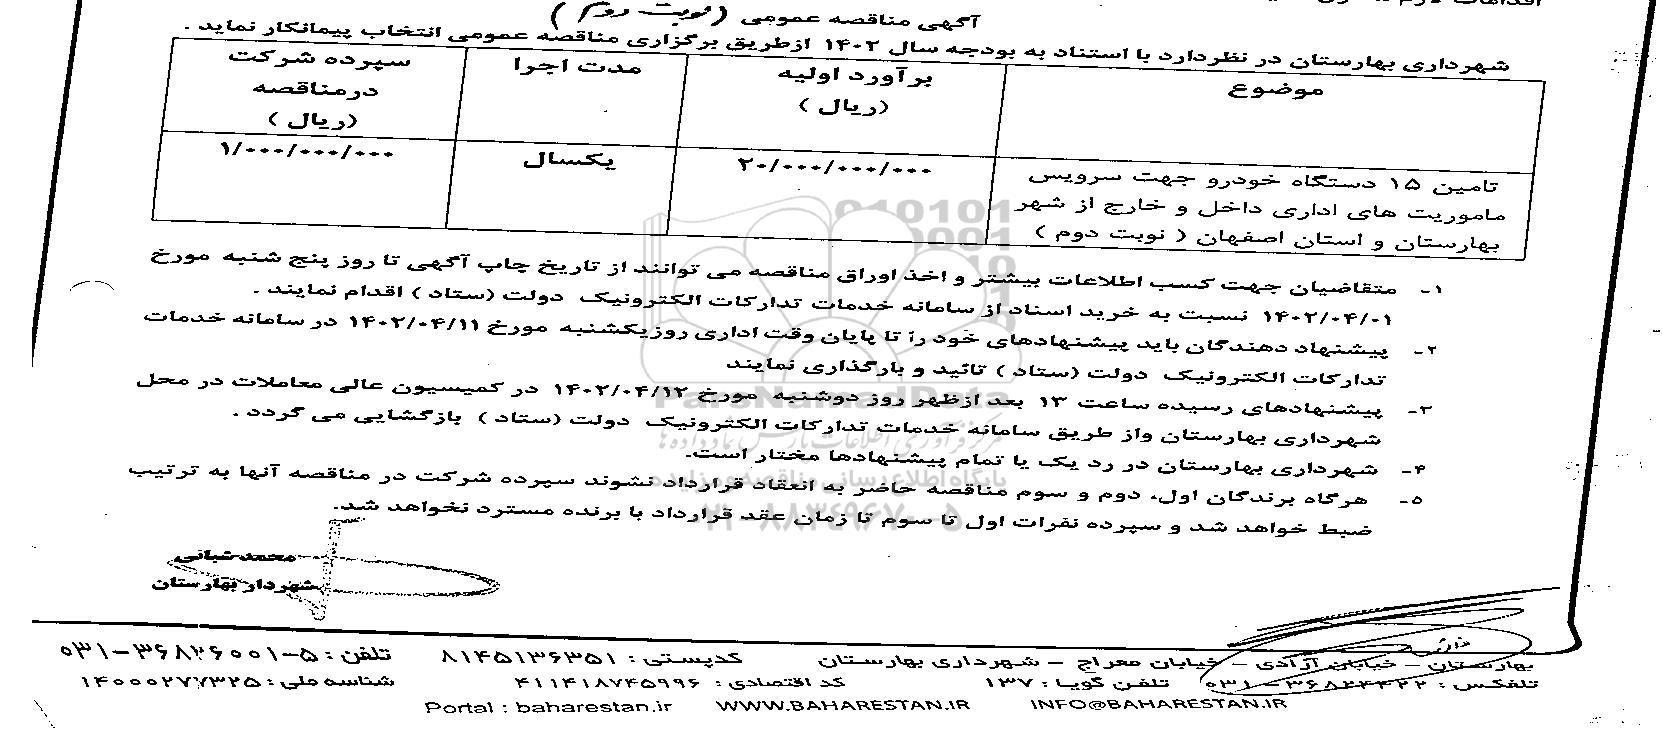 آگهی مناقصه عمومی (نوبت دوم)
شهرداری بهارستان در نظردارد با استناد به بودجه سال ۱۴۰۲ ازطریق برگزاری مناقصه عمومی انتخاب پیمانکار نماید .
موضوع
برآورد اولیه
(ریال )
مدت اجرا
سپرده شرکت
درمناقصه
(ریال )
تامین ۱۵ دستگاه خودرو جهت سرویس
ماموریت های اداری داخل و خارج از شهر
بهارستان و استان اصفهان ( نوبت دوم )
۲۰/۰۰۰/۰۰۰/۰۰۰
یکسال
۱/۰۰۰/۰۰۰/۰۰۰
۱- متقاضیان جهت کسب اطلاعات بیشتر و اخذ اوراق مناقصه می توانند از تاریخ چاپ آگهی تا روز پنج شنبه مورخ
۱۴۰۲/۰۴/۰۱ نسبت به خرید اسناد از سامانه خدمات تدارکات الکترونیک دولت (ستاد ) اقدام نمایند .
۲- پیشنهاد دهندگان باید پیشنهادهای خود را تا پایان وقت اداری روزیکشنبه مورخ ۱۴۰۲/۰۴/۱۱ در سامانه خدمات
تدارکات الکترونیک دولت (ستاد ) تائید و بارگذاری نمایند
۳- پیشنهادهای رسیده ساعت ۱۳ بعد ازظهر روز دوشنبه مورخ ۱۴۰۲/۰۴/۱۲ در کمیسیون عالی معاملات در محل
شهرداری بهارستان واز طریق سامانه خدمات تدارکات الکترونیک دولت (ستاد ) بازگشایی می گردد .
۴- شهرداری بهارستان در رد یک یا تمام پیشنهادها مختار است.
۵- هرگاه برندگان اول، دوم و سوم مناقصه حاضر به انعقاد قرارداد نشوند سپرده شرکت در مناقصه آنها به ترتیب
ضبط خواهد شد و سپرده نفرات اول تا سوم تا زمان عقد قرارداد با برنده مسترد نخواهد شد.
محمد شبانی
شهردار بهارستان
بهارستان – خیابان آزادی – خیابان معراج – شهرداری بهارستان کدپستی : ۸۱۴۵۱۳۶۳۵۱ تلفن : ۵-۳۶۸۲۶۰۰۱-۰۳۱
تلفکس : ۳۶۸۲۴۴۲۲ – ۰۳۱ تلفن گویا : ۱۳۷ کد اقتصادی : ۴۱۱۴۱۸۷۴۵۹۹۶ شناسه ملی : ۱۴۰۰۰۲۷۷۳۲۵
Portal : baharestan.ir WWW.BAHARESTAN.IR INFO@BAHARESTAN.IR